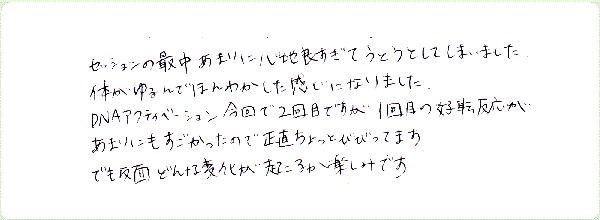 セッションの最中あまりに心地良すぎてうとうとしてしまいました.
体がゆるんでほんわかした感じになりました.
DNAアクティベーション今回で2回目ですが1回目の好転反応が
あまりにもすごかったので正直ちょっとびびってます
でも反面どんな変化が起こるか楽しみです